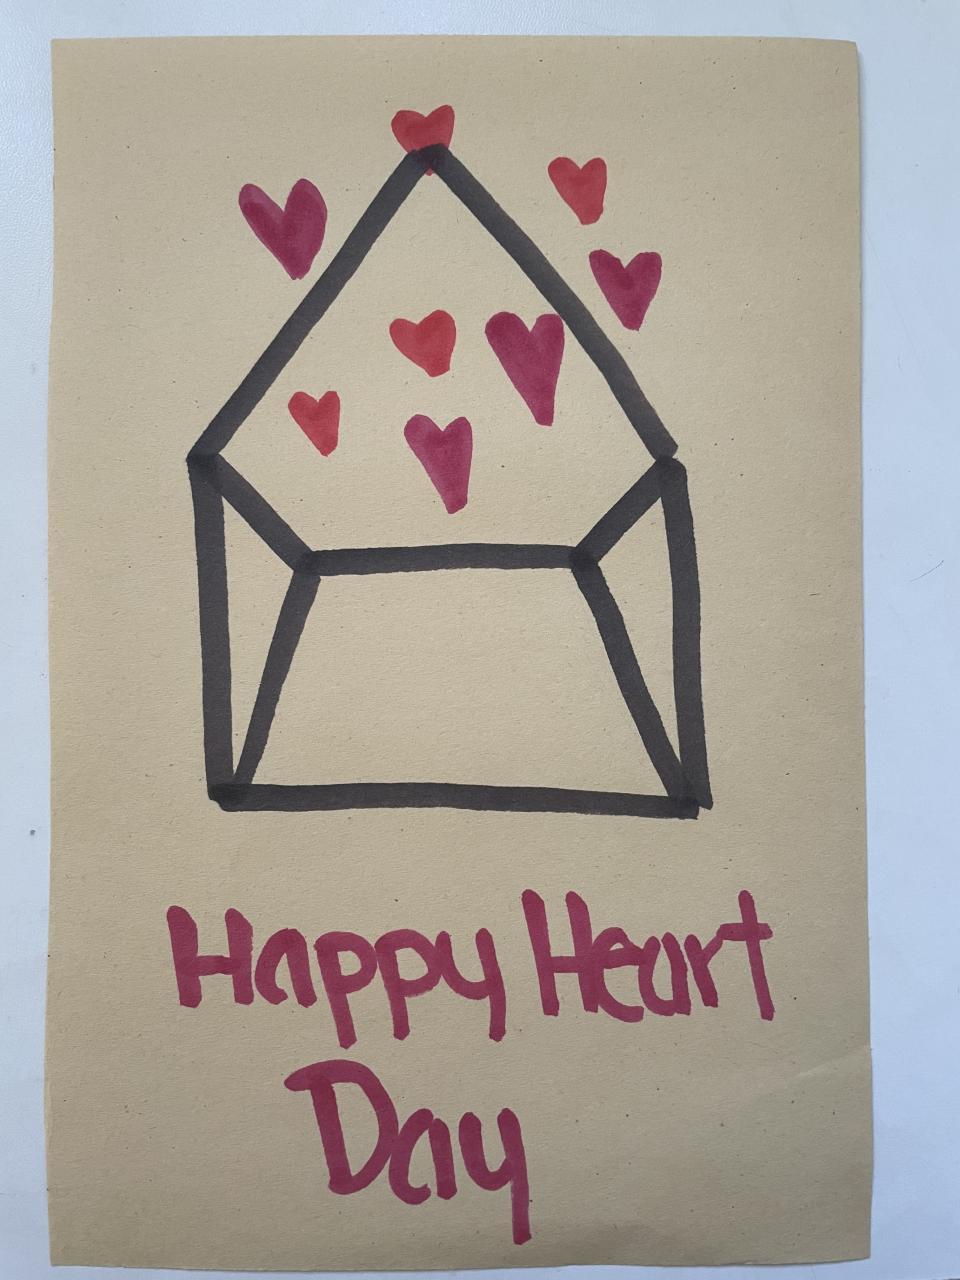 Happy Heart
Day